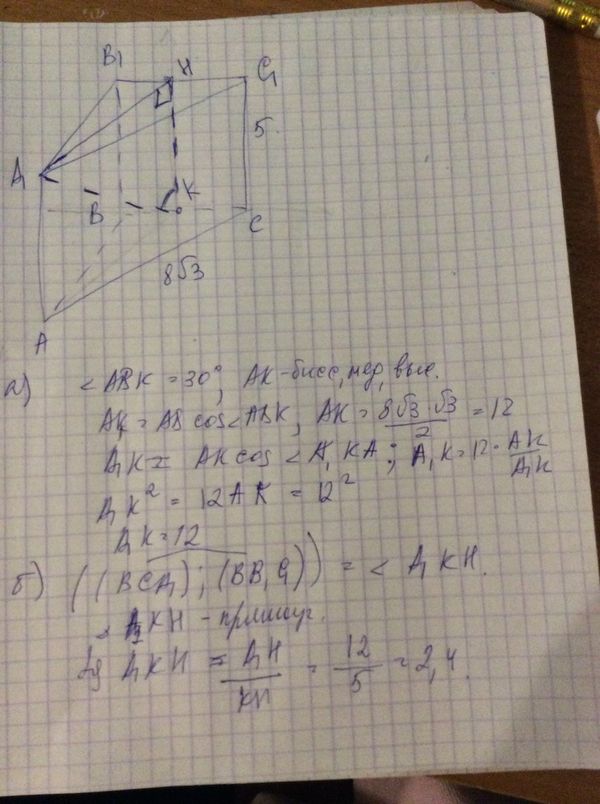 B₁ H C₁
A₁ 5
B K C
8√3
A
а) <ABK = 30°, AK - бисс, мед, выс.
AK = AB cos<ABK, AK = 8√3 √3 / 2 = 12
A₁K = AK cos < A₁KA; A₁K = 12 · AK / A₁K
A₁K² = 12 AK = 12²
A₁K = 12
б) ((BCA₁); (BB₁C₁)) = < A₁KH.
A₁KH - прямоуг.
tg A₁KH = A₁H / KH = 12 / 5 = 2,4.